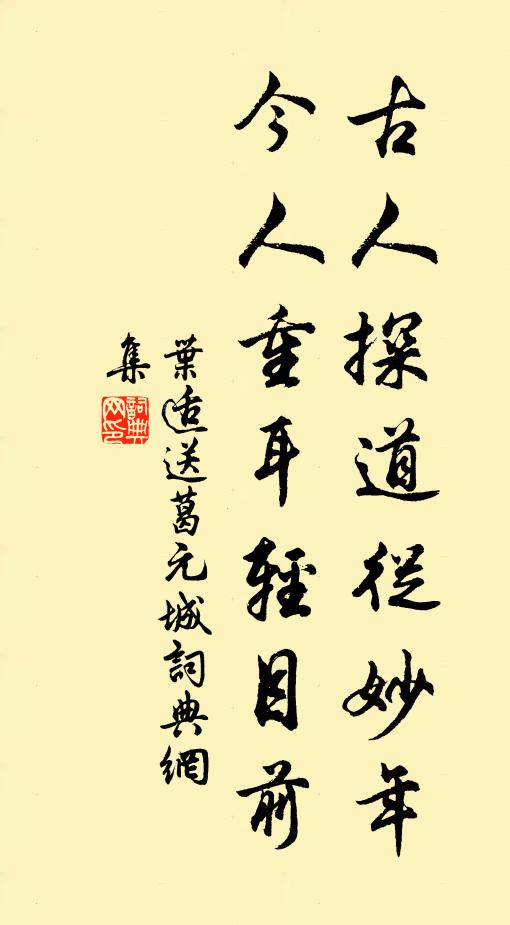 古人探道從妙年
今人重耳輕目前
葉适送葛元城詞典網
集
詞典網印